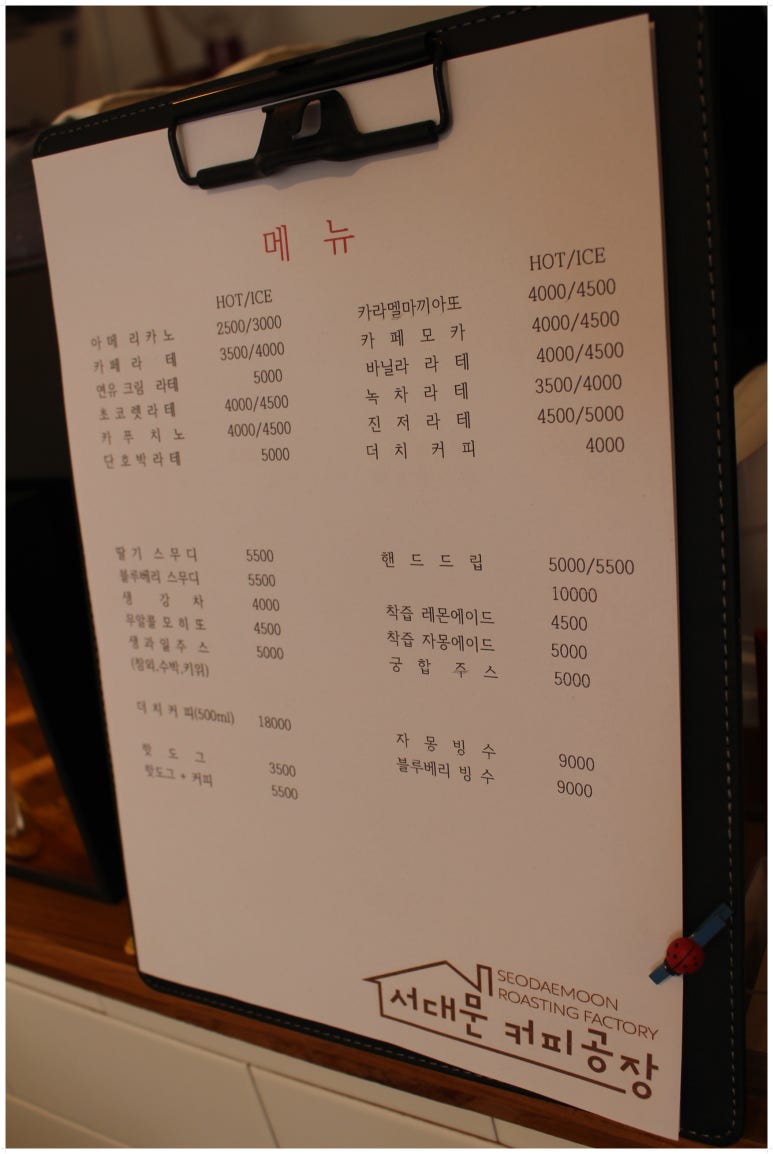 메 뉴
HOT/ICE
아 메 리 카 노 2500/3000
카 페 라 테 3500/4000
연유 크림 라테 5000
초 코 렛 라 테 4000/4500
카 푸 치 노 4000/4500
단 호 박 라 테 5000
HOT/ICE
카라멜마끼아또 4000/4500
카 페 모 카 4000/4500
바닐라 라 테 4000/4500
녹 차 라 테 3500/4000
진 저 라 테 4500/5000
더 치 커 피 4000
딸 기 스 무 디 5500
블루베리 스무디 5500
생 강 차 4000
무알콜 모 히 또 4500
생 과 일 주 스 5000
(참외,수박,키위)
더 치 커 피(500ml) 18000
핫 도 그 3500
핫도그 + 커피 5500
핸 드 드 립 5000/5500
10000
착즙 레몬에이드 4500
착즙 자몽에이드 5000
궁 합 주 스 5000
자 몽 빙 수 9000
블루베리 빙 수 9000
SEODAEMOON
ROASTING FACTORY
서대문 커피공장